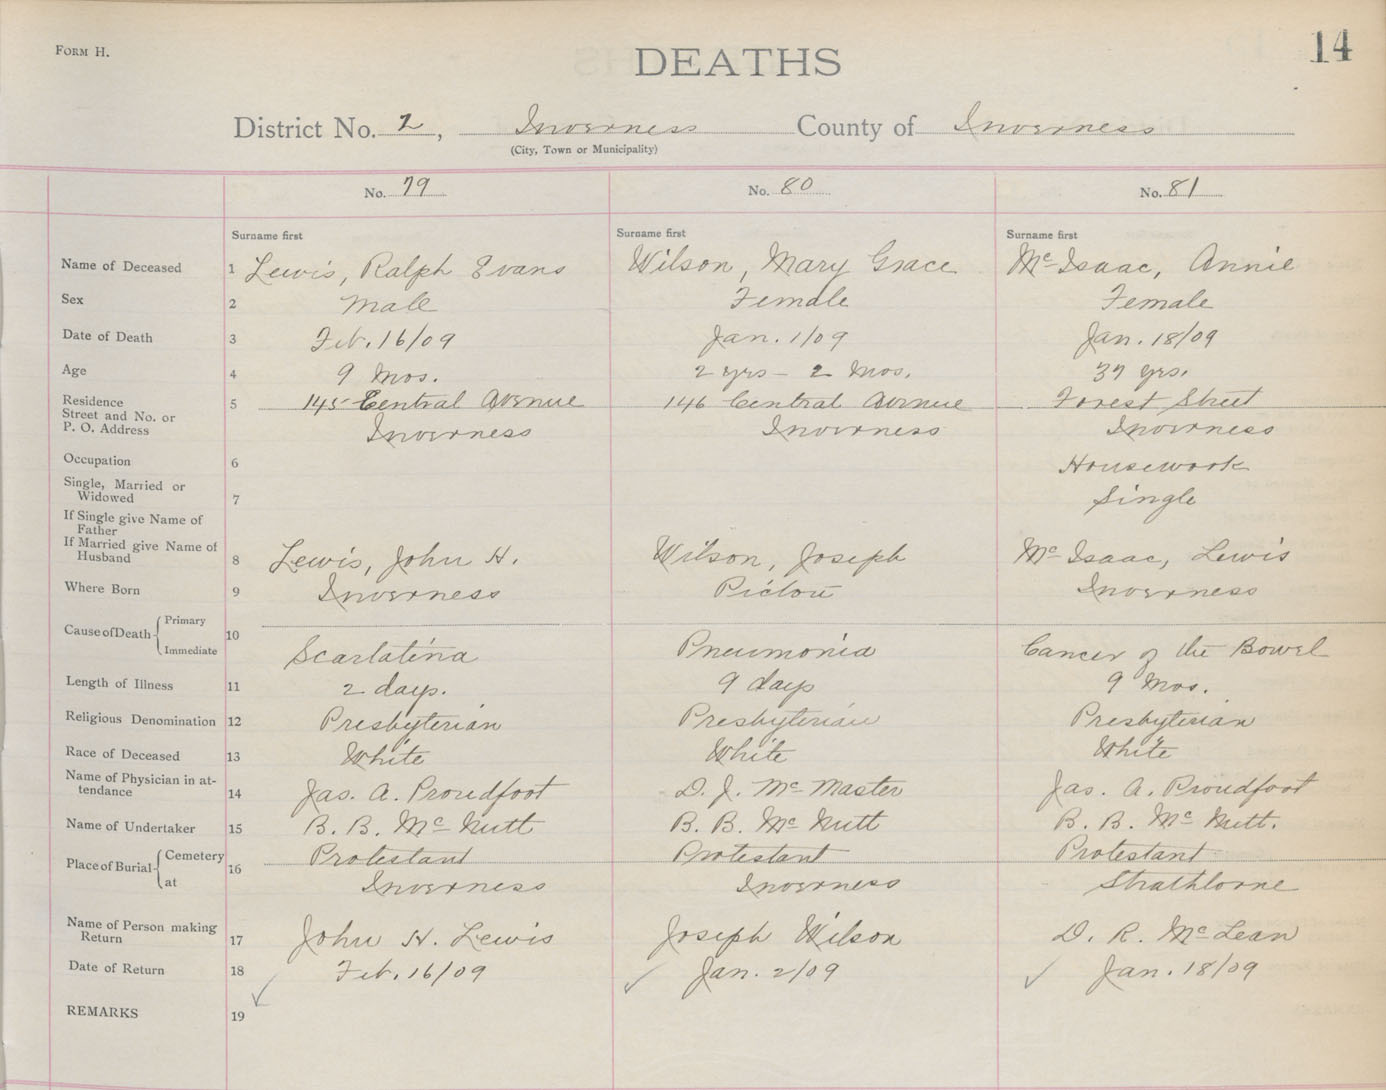 FORM H.
DEATHS
14
District No. 2, Inverness County of Inverness
(City, Town or Municipality)
No. 79 No. 80 No. 81
Surname first Surname first Surname first
Name of Deceased 1 Lewis, Ralph Evans Wilson, Mary Grace McIsaac, Annie
Sex 2 Male Female Female
Date of Death 3 Feb. 16/09 Jan. 1/09 Jan. 18/09
Age 4 9 Mos. 2 yrs - 2 Mos. 37 yrs.
Residence
Street and No. or 5 145 Central Avenue 146 Central Avenue Forest Street
P. O. Address Inverness Inverness Inverness
Occupation 6 Housework
Single, Married or
Widowed 7 Single
If Single give Name of
Father
If Married give Name of
Husband 8 Lewis, John H. Wilson, Joseph McIsaac, Lewis
Where Born 9 Inverness Pictou Inverness
Cause of Death Primary 10
Immediate Scarlatina Pneumonia Cancer of the Bowel
Length of Illness 11 2 days. 9 days 9 Mos.
Religious Denomination 12 Presbyterian Presbyterian Presbyterian
Race of Deceased 13 White White White
Name of Physician in at-
tendance 14 Jas. A. Proudfoot D. J. McMaster Jas. A. Proudfoot
Name of Undertaker 15 B. B. McNutt B. B. McNutt B. B. McNutt.
Place of Burial Cemetery 16 Protestant Protestant Protestant
at Inverness Inverness Strathlorne
Name of Person making
Return 17 John H. Lewis Joseph Wilson D. R. McLean
Date of Return 18 Feb. 16/09 Jan. 2/09 Jan. 18/09
REMARKS 19